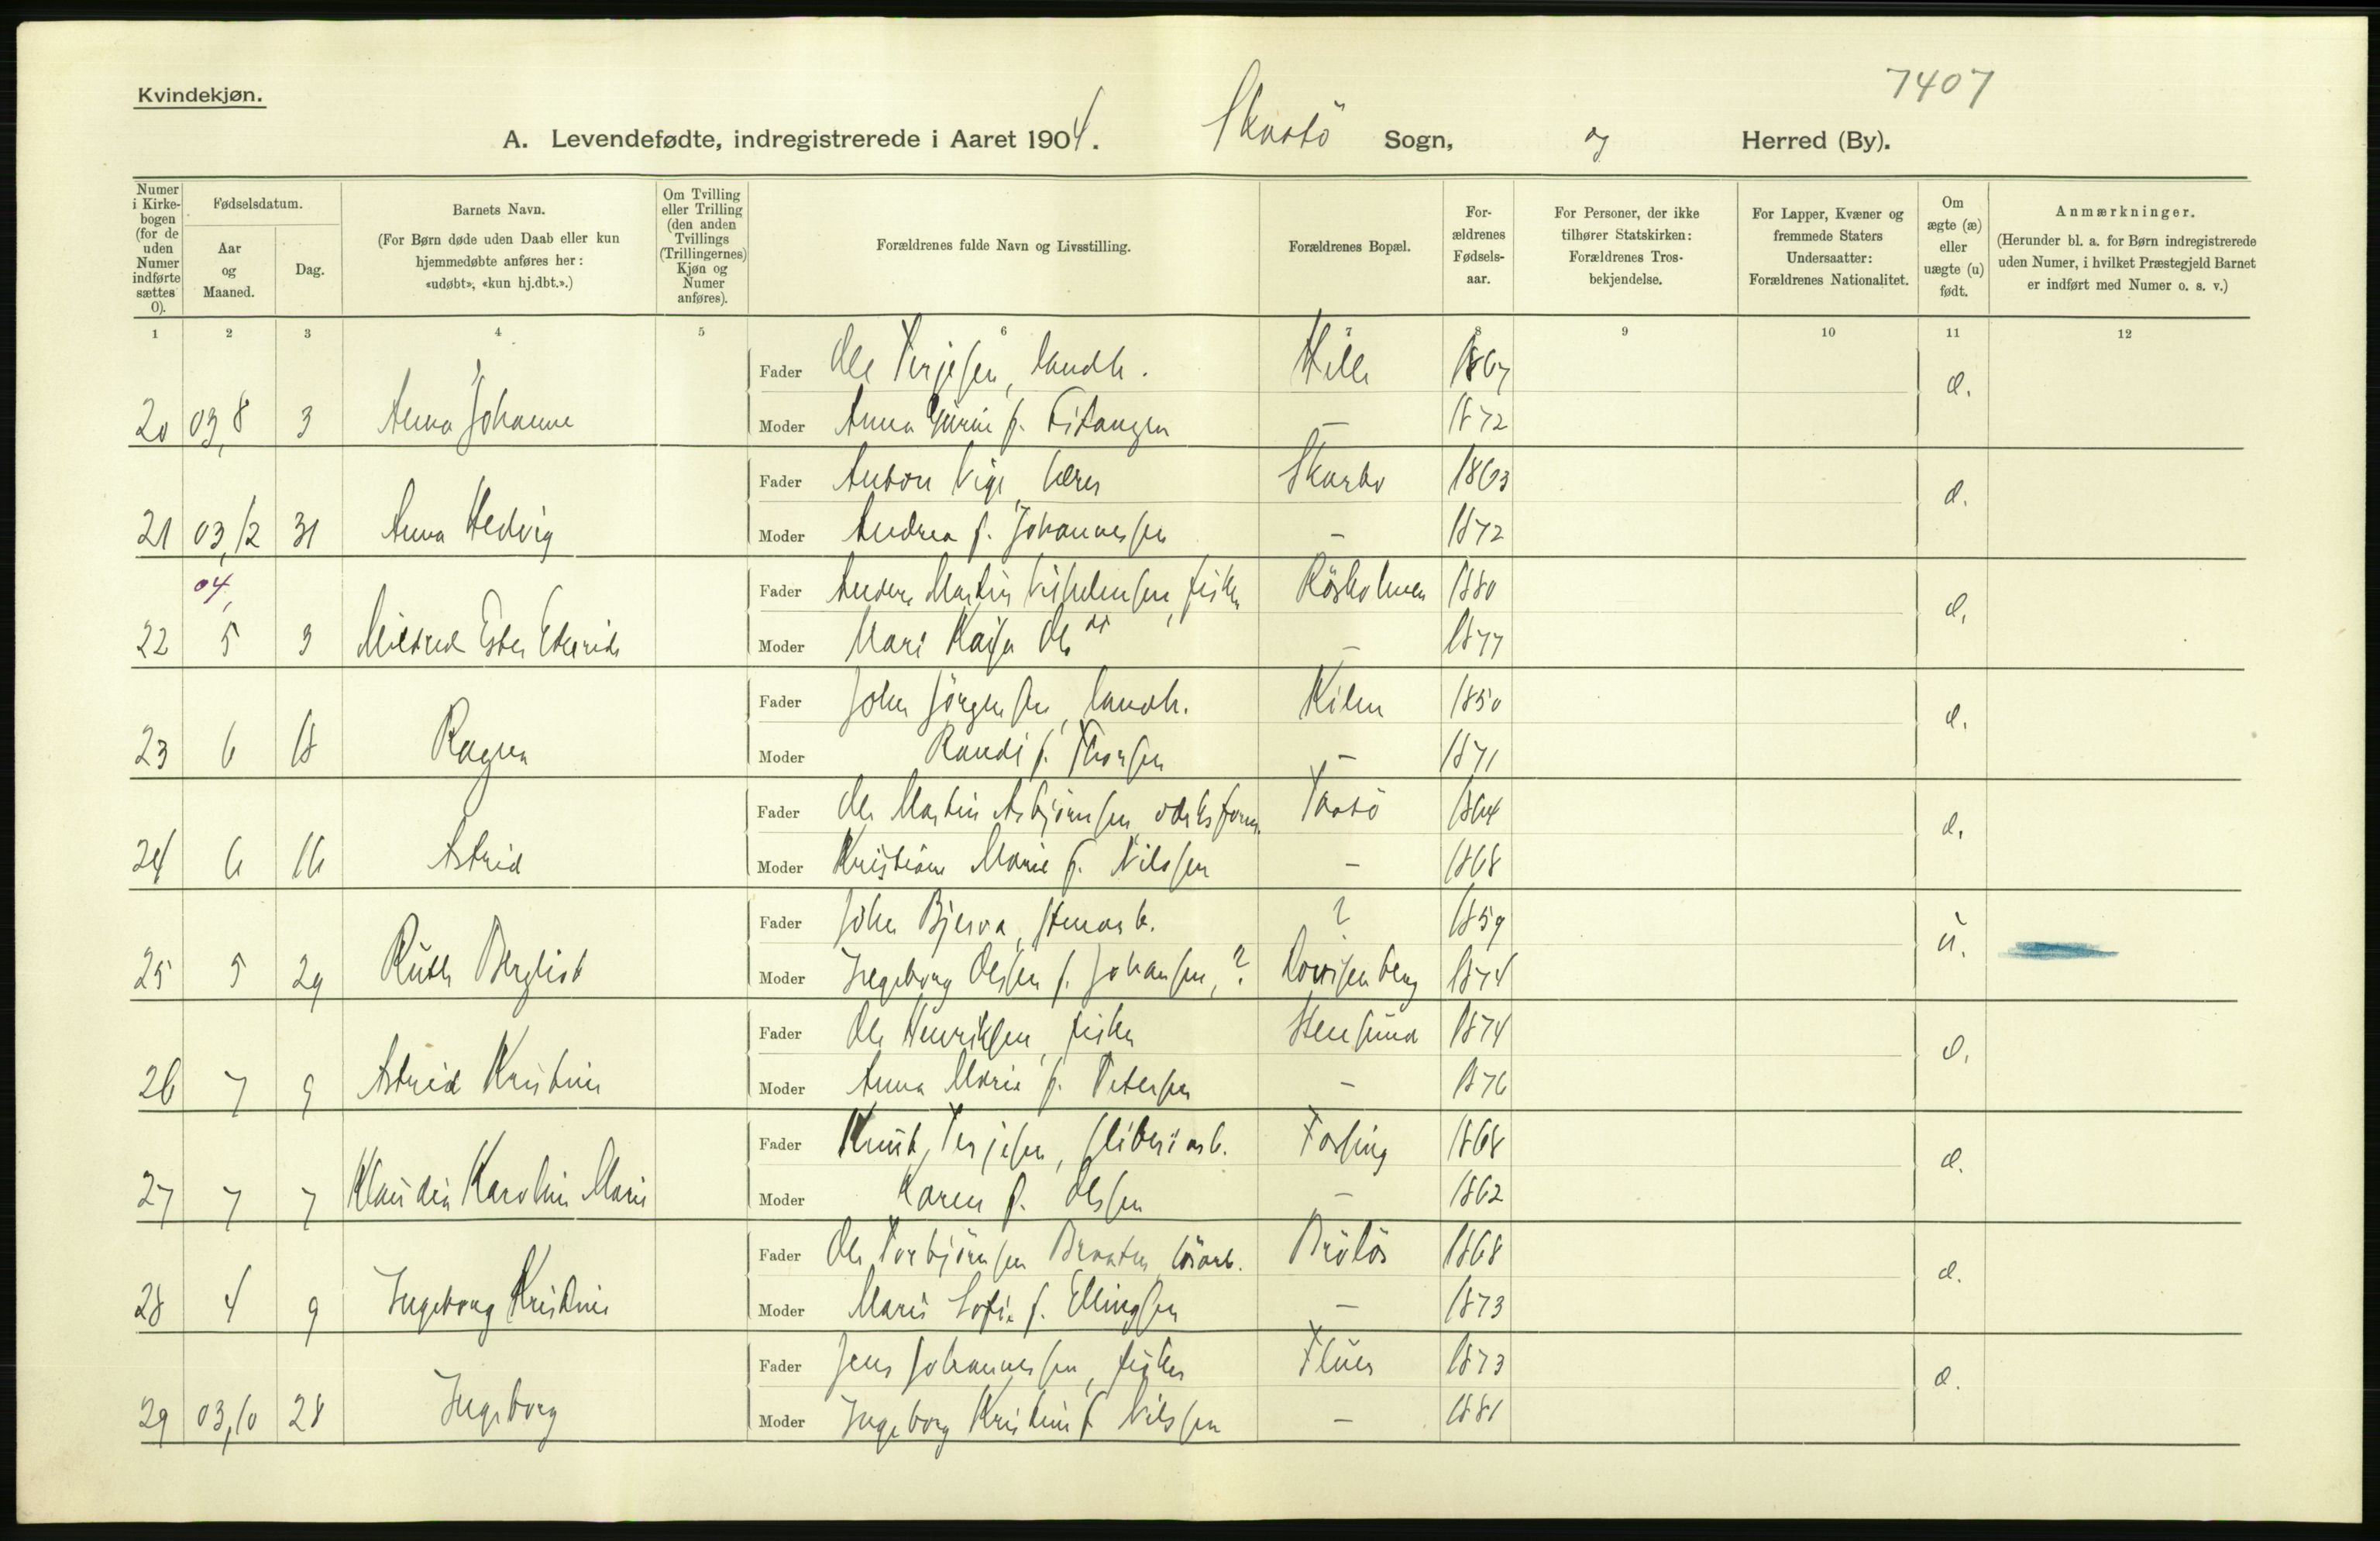 Kvindekjøn.
7407
A. Levendefødte, indregistrerede i Aaret 1904. Skaatö Sogn, og Herred (By).
Numer i Kirke-bogen (for de uden Numer indførte sættes 0).
Fødselsdatum.
Aar og Maaned.
Dag.
Barnets Navn.
(For Børn døde uden Daab eller kun hjemmedøbte anføres her: «udøbt», «kun hj.dbt.».)
Om Tvilling eller Trilling (den anden Tvillings (Trillingernes) Kjøn og Numer anføres).
Forældrenes fulde Navn og Livsstilling.
Forældrenes Bopæl.
For-ældrenes Fødsels-aar.
For Personer, der ikke tilhører Statskirken: Forældrenes Tros-bekjendelse.
For Lapper, Kvæner og fremmede Staters Undersaatter: Forældrenes Nationalitet.
Om ægte (æ) eller uægte (u) født.
Anmærkninger.
(Herunder bl. a. for Børn indregistrerede uden Numer, i hvilket Præstegjeld Barnet er indført med Numer o. s. v.)
1 2 3 4 5 6 7 8 9 10 11 12
Fader Ole Terjesen, landh. 1867 æ.
20 03,8 3 Anna Johanne
Moder Anna f. – 1872
Fader Anton 1863 æ.
21 03,12 31 Anna Hedvig
Moder Andrea f. Johannessen – 1872
04,
Fader Anders Martin fisker 1880 æ.
22 5 3 Mildred Ester
Moder – 1877
Fader John Jörgensen, landh. Kilen 1850 æ.
23 6 18 Ragna
Moder Randi f. Thorsen – 1871
Fader Ole Martin Asbjörnsen, Taatö 1864 æ.
24 6 16 Astrid
Moder Kristiane Marie f. Nilssen – 1868
Fader John Bjerva, stenarb. ? 1859 u.
25 5 29 Ruth Bergliot
Moder Ingeborg Olsen f. Johansen, ? Lovisenberg 1874
Fader Ole Henriksen, fisker Stensund 1874 æ.
26 7 9 Astrid Kristine
Moder Anna Marie f. Petersen – 1876
Fader Knut Terjesen, sliberiarb. Fossing 1868 æ.
27 7 7 Klaudia Karoline Marie
Moder Karen f. Olsen – 1862
Fader Ole Torbjörnsen Braaten, lösarb. 1868 æ.
28 4 9 Ingeborg Kristine
Moder Marie Sofie f. Ellingsen – 1873
Fader Jens Johannessen, fisker 1873 æ.
29 03,10 28 Ingeborg
Moder Ingeborg Kristine f. Nilssen – 1881